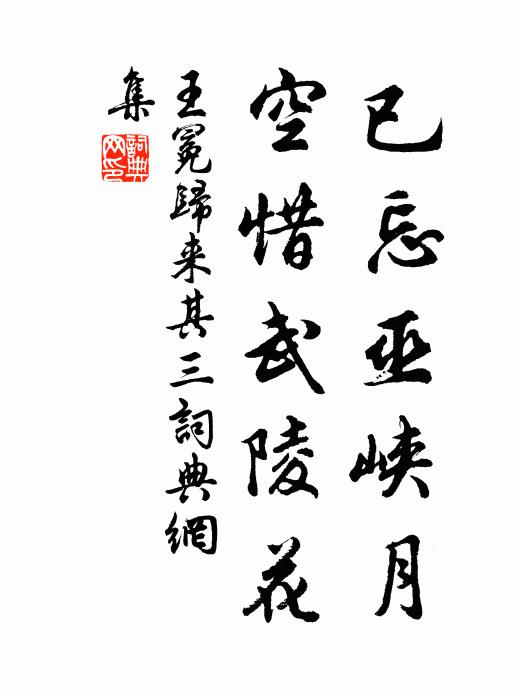 已忘巫峽月
空惜武陵花
王冕歸来其三詞典網
集
詞典网印